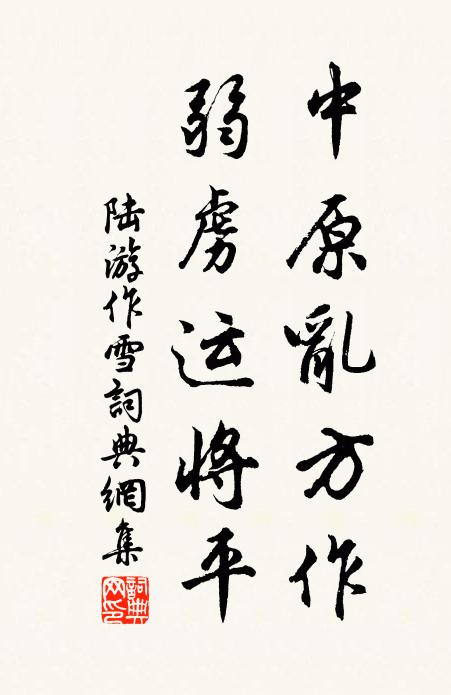 中原亂方作
弱虜运將平
陆游作雪詞典網集
詞典网印